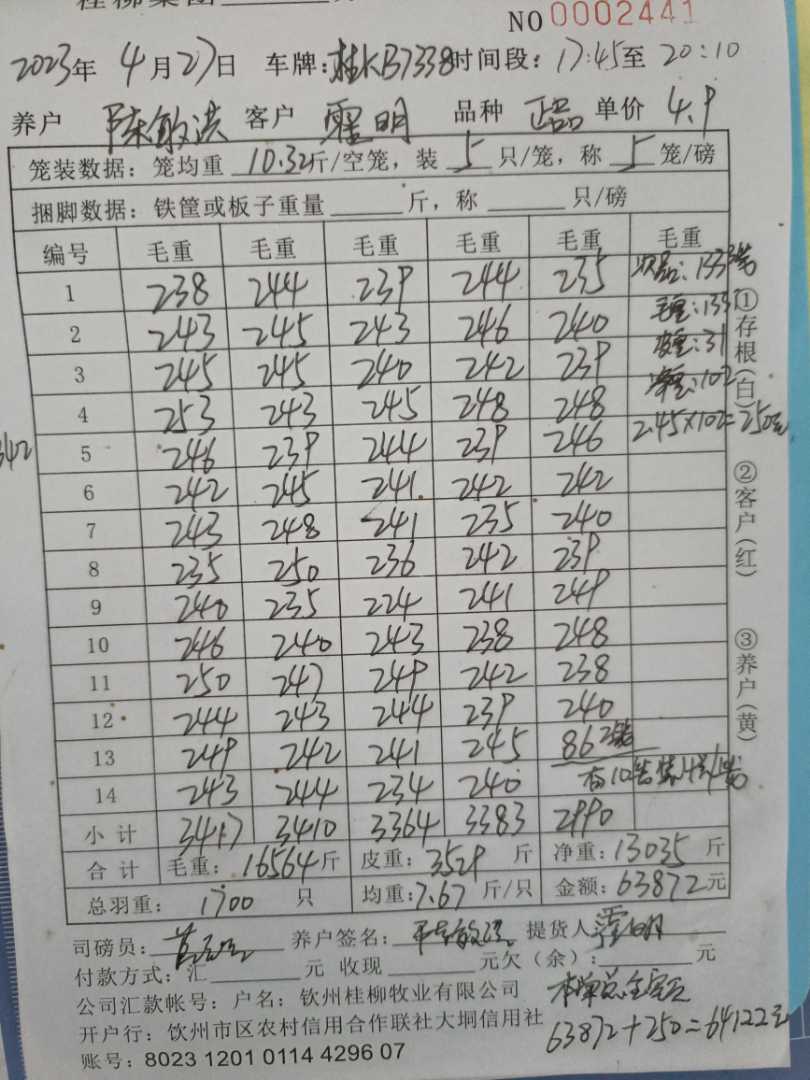 桂柳集团
NO 0002441
2023年 4月27日 车牌:桂KB7338 时间段:17:45至 20:10
养户 陈敏洪 客户 霍明 品种 正品 单价 4.9
笼装数据:笼均重 10.32斤/空笼,装 5 只/笼,称 5 笼/磅
捆脚数据:铁筐或板子重量 斤,称 只/磅
编号 毛重 毛重 毛重 毛重 毛重 毛重
1 238 244 239 244 235 次品:133 3笼
2 243 245 243 246 240 毛重:133
3 245 245 240 242 239 皮重:31
4 253 243 245 248 248 净重:102
5 246 239 244 239 246 2.45×102=250元
6 242 245 241 242 242
7 243 248 241 235 240
8 235 250 236 242 239
9 240 235 224 241 249
10 246 240 243 238 248
11 250 247 249 242 238
12 244 243 244 239 240
13 249 242 241 245 86 2笼
14 243 244 234 240 有10笼装4只/笼
小计 3417 3410 3364 3383 2990
合计 毛重:16564斤 皮重:3529 斤 净重:13035 斤
总羽重: 1700 只 均重:7.67 斤/只 金额:63872元
①存根(白)
②客户(红)
③养户(黄)
342
司磅员: 养户签名: 陈敏洪 提货人 霍明
付款方式:汇 元 收现 元欠(余): 元
公司汇款帐号:户名:钦州桂柳牧业有限公司 本单总金额
开户行:钦州市区农村信用合作联社大垌信用社 63872+250=64122元
账号:8023 1201 0114 4296 07